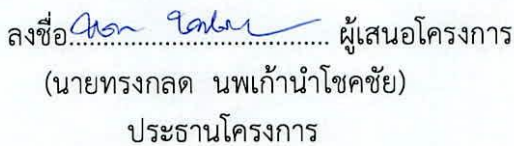 ลงชื่อ............................................ผู้เสนอโครงการ
(นายทรงกลด นพเก้านำโชคชัย)
ประธานโครงการ